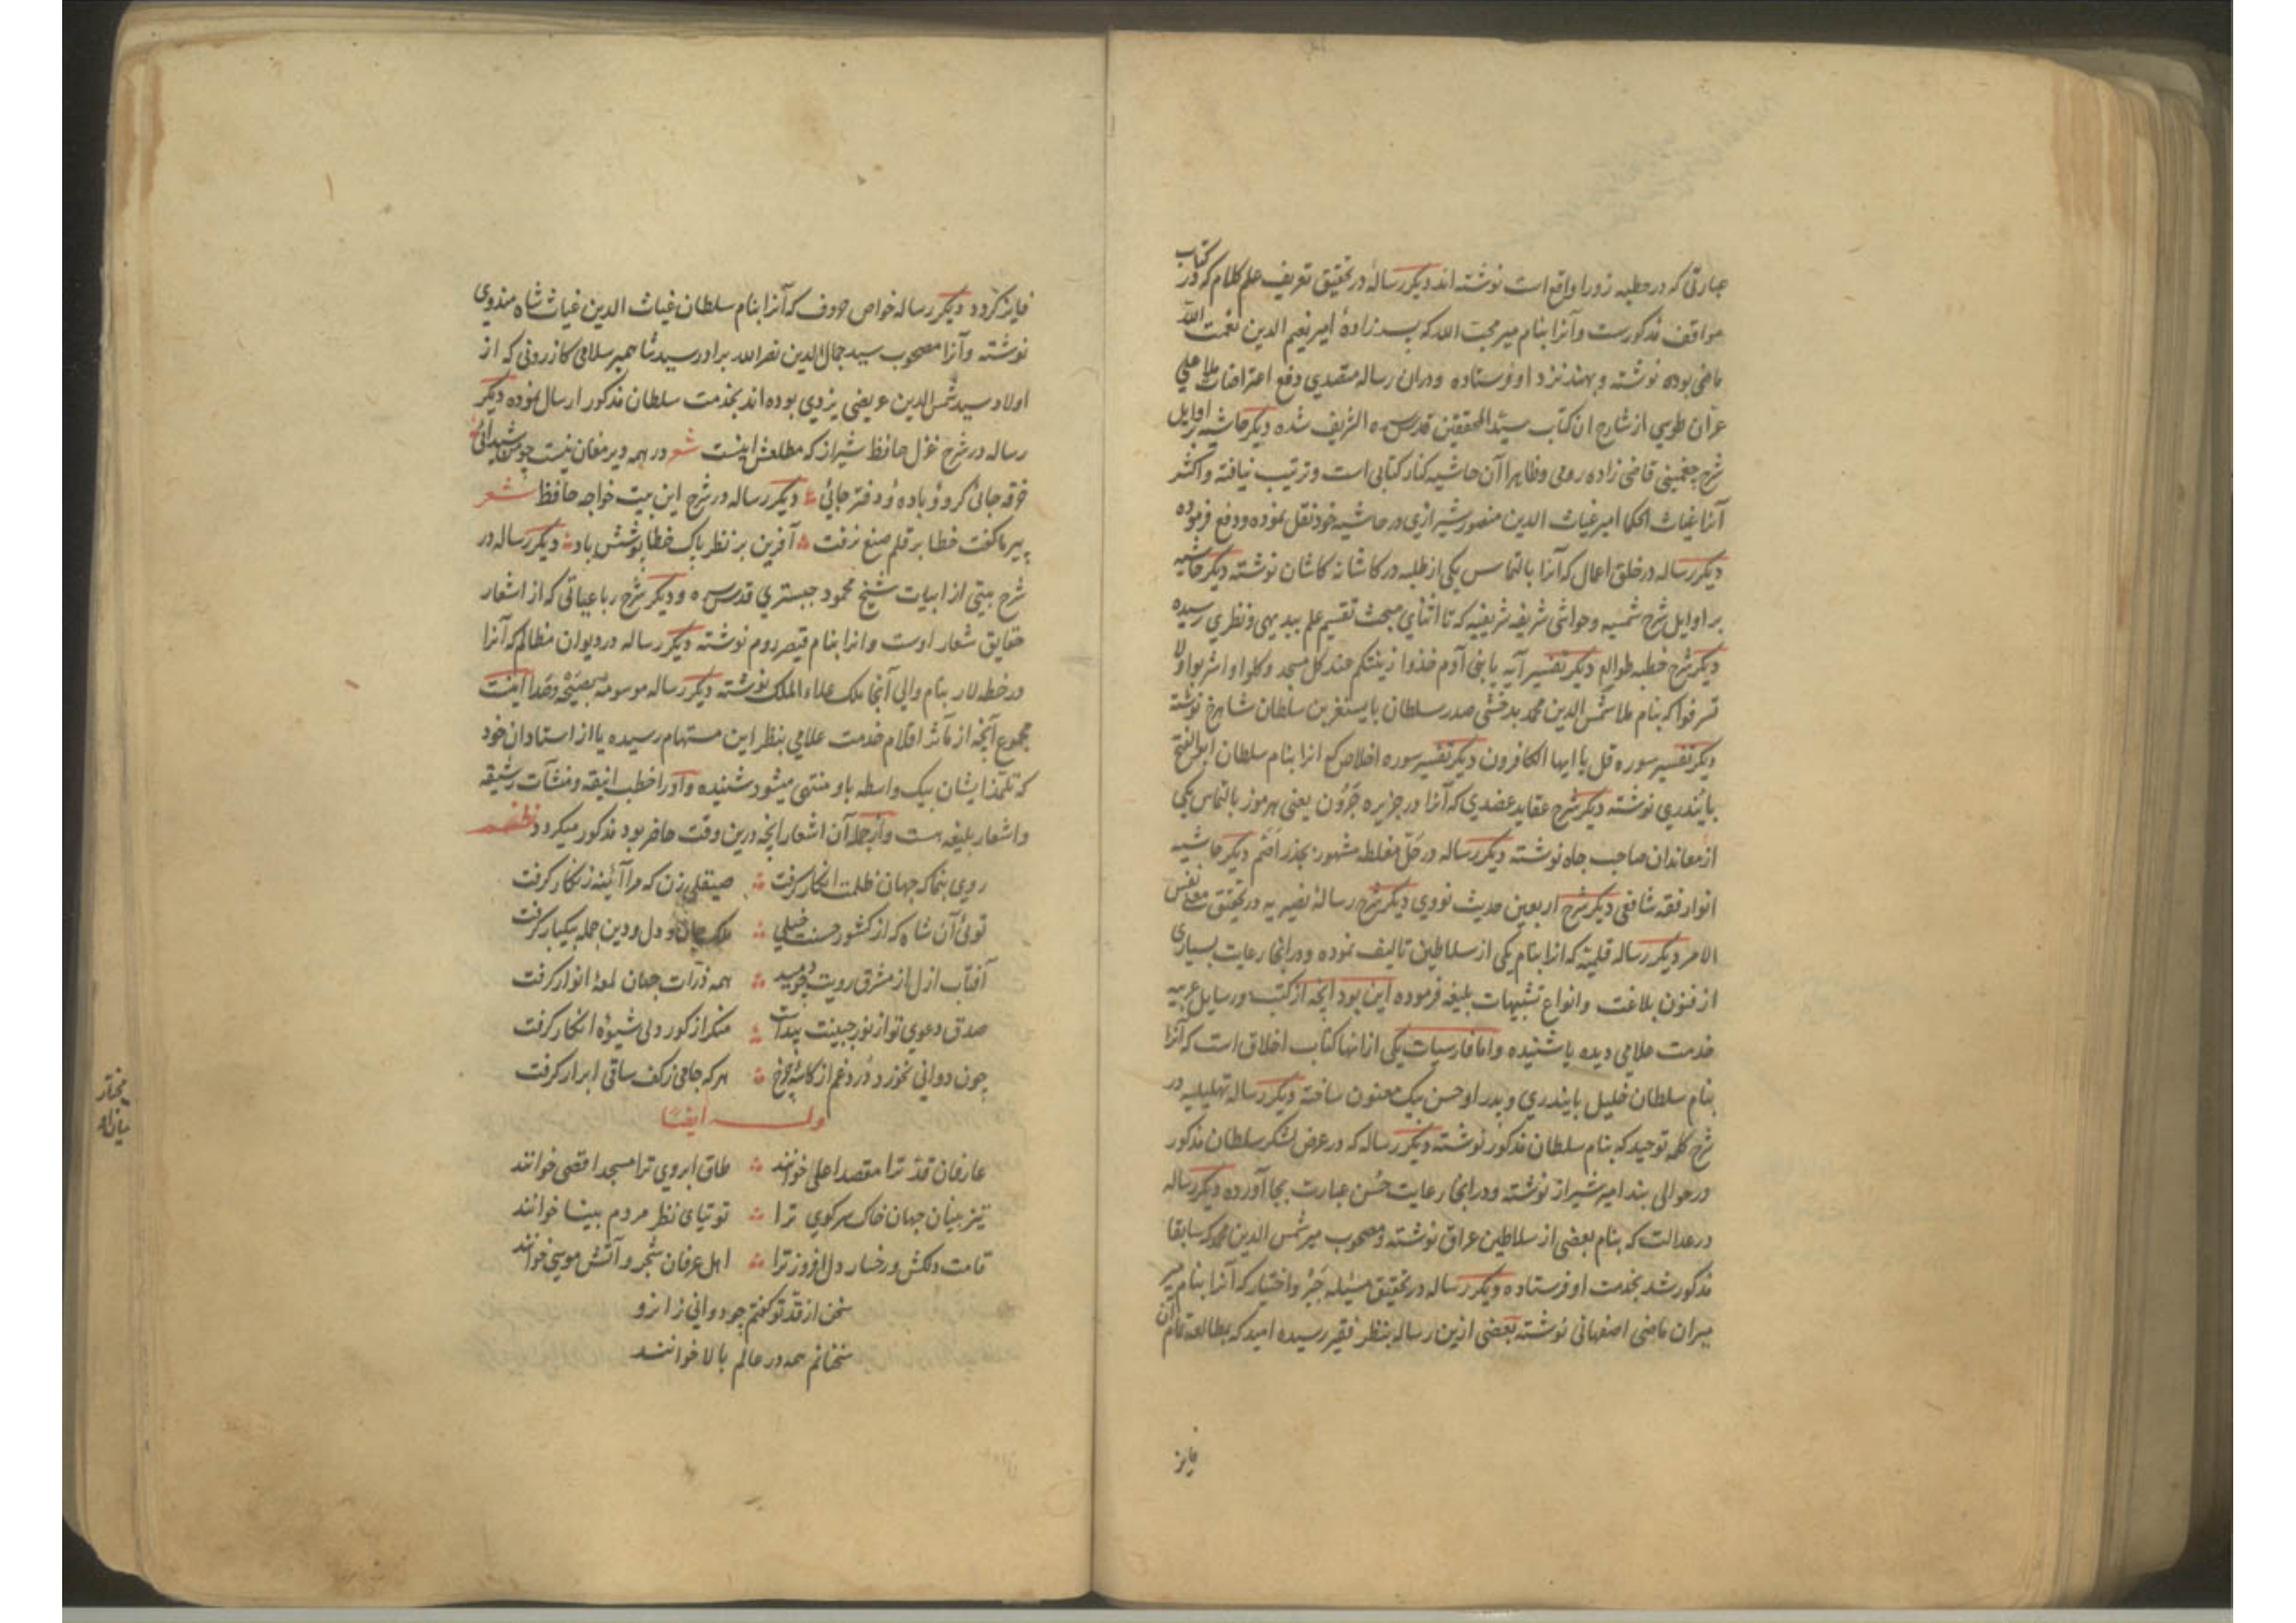 عبارتی که در خطبه زورا واقع است نوشته‌اند دیگر رسالهٔ در تحقیق تعریف علم کلام که در کتاب
مواقف مذکورست وآنرا بنام میر محب الله که پسرزادهٔ امیر نعیم الدین نعمت الله
ماضی بوده نوشته و بهند نزد او فرستاده ودران رساله متصدی دفع اعتراضات ملا علی
عران طوسی از شارح ان کتاب سید المحققین قدس سره الشریف شده دیگر حاشیه بر اوایل
شرح چغمینی قاضی زاده رومی وظاهرا آن حاشیه کنار کتابی است وترتیب نیافته واکثر
آنرا غیاث الحکما امیر غیاث الدین منصور شیرازی در حاشیه خود نقل نموده ودفع فرموده
دیگر رساله در خلق اعمال که آنرا بالتماس یکی از طلبه در کاشانه کاشان نوشته دیگر حاشیه
بر اوایل شرح شمسیه وحواشی شریفه شریفیه که تا اثنای مبحث تقسیم علم ببدیهی ونظری رسیده
دیگر شرح خطبه طوالع دیگر تفسیر آیه یا بنی آدم خذوا زینتکم عند کل مسجد وکلوا واشربوا ولا
تسرفوا که بنام ملا شمس الدین محمد بدخشی صدر سلطان بایسنغر بن سلطان شاهرخ نوشته
دیگر تفسیر سوره قل یا ایها الکافرون دیگر تفسیر سوره اخلاص که انرا بنام سلطان ابو الفتح
بایندری نوشته دیگر شرح عقاید عضدی که آنرا در جزیره جَرُون یعنی هرموز بالتماس یکی
از معاندان صاحب جاه نوشته دیگر رساله در حلّ مغلطه مشهور بجذر اصم دیگر حاشیه
انوار فقه شافعی دیگر شرح اربعین حدیث نووی دیگر شرح رسالهٔ نصیریه در تحقیق معنی نفس
الامر دیگر رساله قلمیّه که انرا بنام یکی از سلاطین تالیف نموده ودر انجا رعایت بسیاری
از فنون بلاغت وانواع تشبیهات بلیغه فرموده این بود آنچه از کتب ورسایل عربیه
خدمت علامی دیده یا شنیده واما فارسیات یکی از انها کتاب اخلاق است که آنرا
بنام سلطان خلیل بایندری وپدر او حسن بیک معنون ساخته دیگر رساله تهلیلیه در
شرح کلمه توحید که بنام سلطان مذکور نوشته دیگر رساله که در عرض لشکر سلطان مذکور
در حوالی بند امیر شیراز نوشته ودر انجا رعایت حُسن عبارت بجا آورده دیگر رساله
در عدالت که بنام بعضی از سلاطین عراق نوشته ومصحوب میر شمس الدین محمد که سابقا
مذکور شد بخدمت او فرستاده دیگر رساله در تحقیق مسئله جَبْر واختیار که آنرا بنام میر
میران ماضی اصفهانی نوشته بعضی ازین رساله بنظر فقیر رسیده امید که بمطالعه تمام آن
فایز
فایز گردد دیگر رساله خواص حروف که آنرا بنام سلطان غیاث الدین غیاث شاه مندوی
نوشته وآنرا مصحوب سید جمال الدین نصر الله برادر سید شاهمیر سلامی کازرونی که از
اولاد سید شمس الدین عریضی یزدی بوده‌اند بخدمت سلطان مذکور ارسال نموده دیگر
رساله در شرح غزل حافظ شیراز که مطلعش اینست شعر در همه دیر مغان نیست چو من شیدائی
خرقه جائی گرو وُ باده وُ دفتر جائی دیگر رساله در شرح این بیت خواجه حافظ شعر
پیر ما گفت خطا بر قلم صنع نرفت آفرین بر نظر پاک خطا پوشش باد دیگر رساله در
شرح بیتی از ابیات شیخ محمود جبستری قدس سره ودیگر شرح رباعیاتی که از اشعار
حقایق شعار اوست وانرا بنام قیصر روم نوشته دیگر رساله در دیوان مظالم که آنرا
در خطه لار بنام والی آنجا ملک علاء الملک نوشته دیگر رساله موسومه بصیحه وصدا اینست
مجموع آنچه از مآثر اقلام خدمت علامی بنظر این مستهام رسیده یا از استادان خود
که تلمّذ ایشان بیک واسطه باو منتهی میشود شنیده واو را خطب انیقه ومنشآت رشیقه
واشعار بلیغه هست واز جمله آن اشعار انچه درین وقت حاضر بود مذکور میگردد نظم
روی بنما که جهان ظلمت انکار گرفت صیقلی زن که مرا آئینه زنگار گرفت
توئی آن شاه که از کشور حسنت خیلی ملک جان و دل ودین جمله بیکبار گرفت
آفتاب ازل از مشرق رویت چو دمید همه ذرّات جهان لمعهٔ انوار گرفت
صدق دعوی تو از نور جبینت پیداست منکر از کور دلی شیوهٔ انکار گرفت
چون دوانی نخورد دُرد غم از کاسهٔ چرخ هر که جامی ز کف ساقی ابرار گرفت
وله ایضاً
عارفان قدّ ترا مقصد اعلی خوانند طاق ابروی ترا مسجد اقصی خوانند
تیز بینان جهان خاک سر کوی ترا توتیای نظر مردم بینا خوانند
قامت دلکش ورخسار دل افروز ترا اهل عرفان شجر و آتش موسی خوانند
سخن از قدّ تو گفتم چو دوانی زانرو
سخنانم همه در عالم بالا خوانند